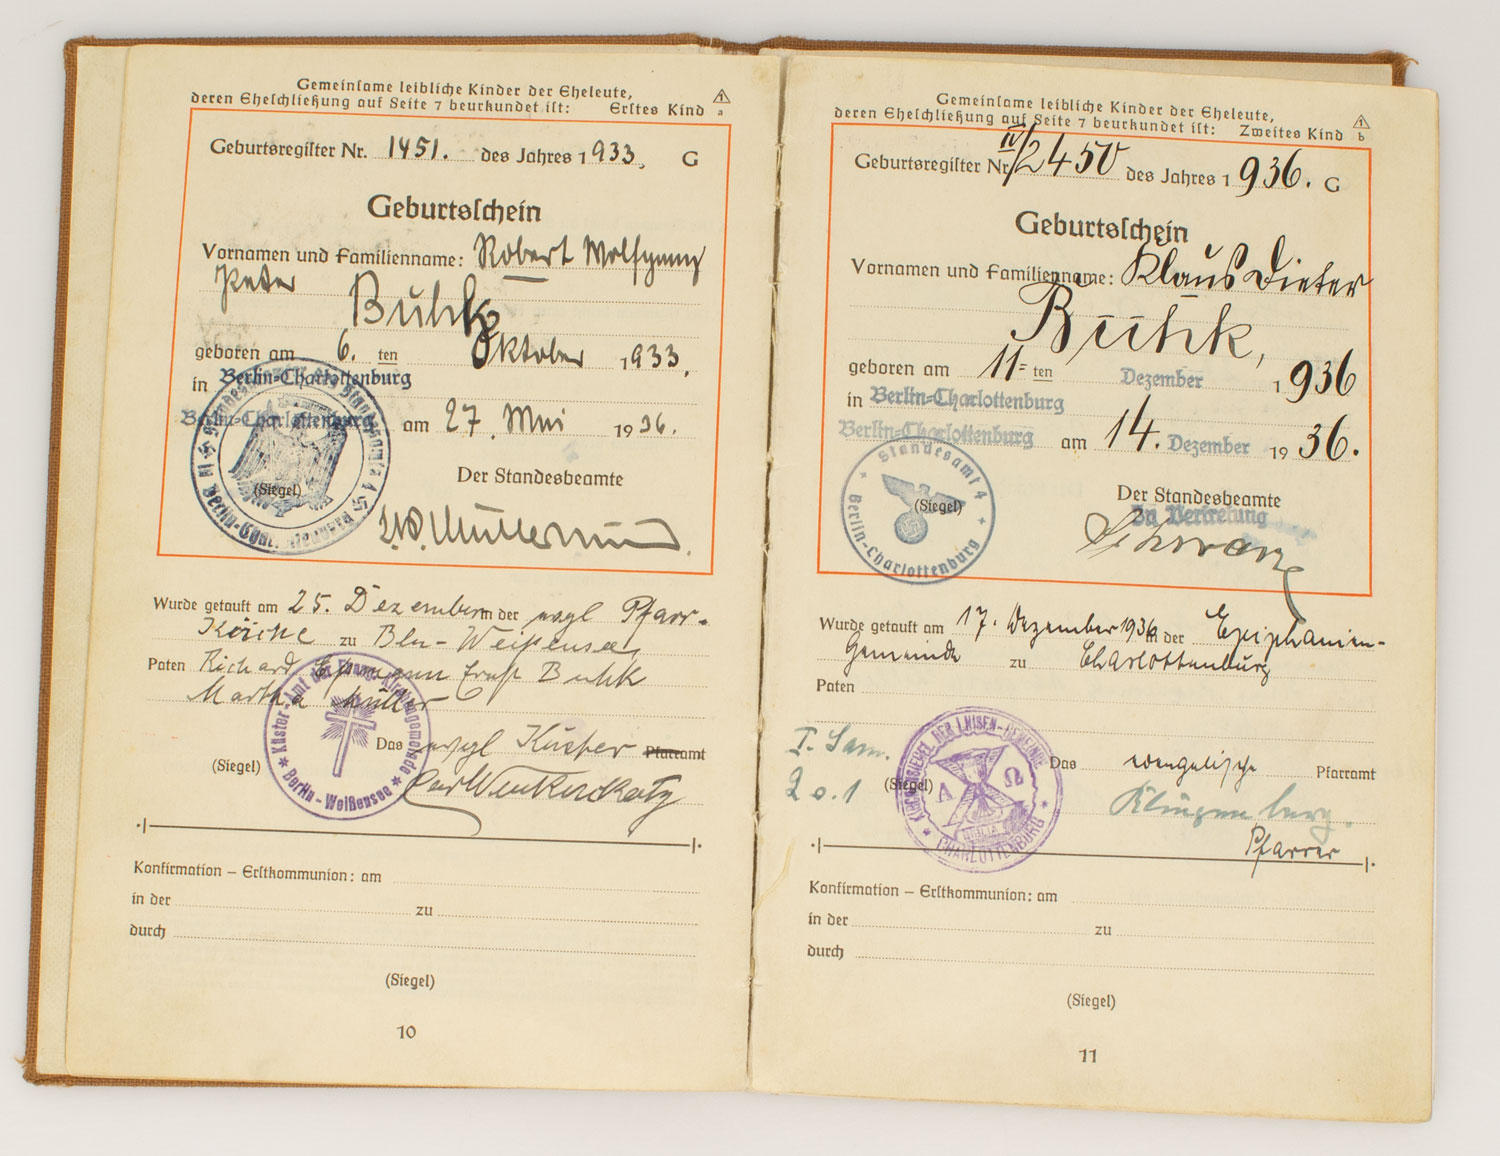 Gemeinsame leibliche Kinder der Eheleute,
deren Eheschließung auf Seite 7 beurkundet ist: Erstes Kind 1 a
Geburtsregister Nr. 1451. des Jahres 1933. G
Geburtsschein
Vornamen und Familienname: Robert Wolfgang
Peter
Buhk
geboren am 6. ten Oktober 1933.
in Berlin-Charlottenburg
Berlin-Charlottenburg am 27. Mai 1936.
Der Standesbeamte
(Siegel)
Wurde getauft am 25. Dezember in der evgl Pfarr-
Kirche zu Bln-Weißensee
Paten Richard Ernst Buhk
Martha Müller
Küster-Amt der Evang. Kirchengemeinde
Berlin-Weißensee
Das evgl Küster Pfarramt
(Siegel)
Konfirmation – Erstkommunion: am
in der zu
durch
(Siegel)
10
Gemeinsame leibliche Kinder der Eheleute,
deren Eheschließung auf Seite 7 beurkundet ist: Zweites Kind 1 b
Geburtsregister Nr. IV/2450 des Jahres 1936. G
Geburtsschein
Vornamen und Familienname: Klaus Dieter
Buhk,
geboren am 11= ten Dezember 1936
in Berlin-Charlottenburg
Berlin-Charlottenburg am 14. Dezember 1936.
Der Standesbeamte
In Vertretung
Schwarz
Standesamt 4
(Siegel)
Berlin-Charlottenburg
Wurde getauft am 17. Dezember 1936 in der Epiphanien-
Gemeinde zu Charlottenburg
Paten
I. Sam.
2 o. 1
KIRCHENSIEGEL DER LUISEN-GEMEINDE
A Ω
BIBLIA
CHARLOTTENBURG
(Siegel)
Das evangelische Pfarramt
Klingenberg.
Pfarrer
Konfirmation – Erstkommunion: am
in der zu
durch
(Siegel)
11